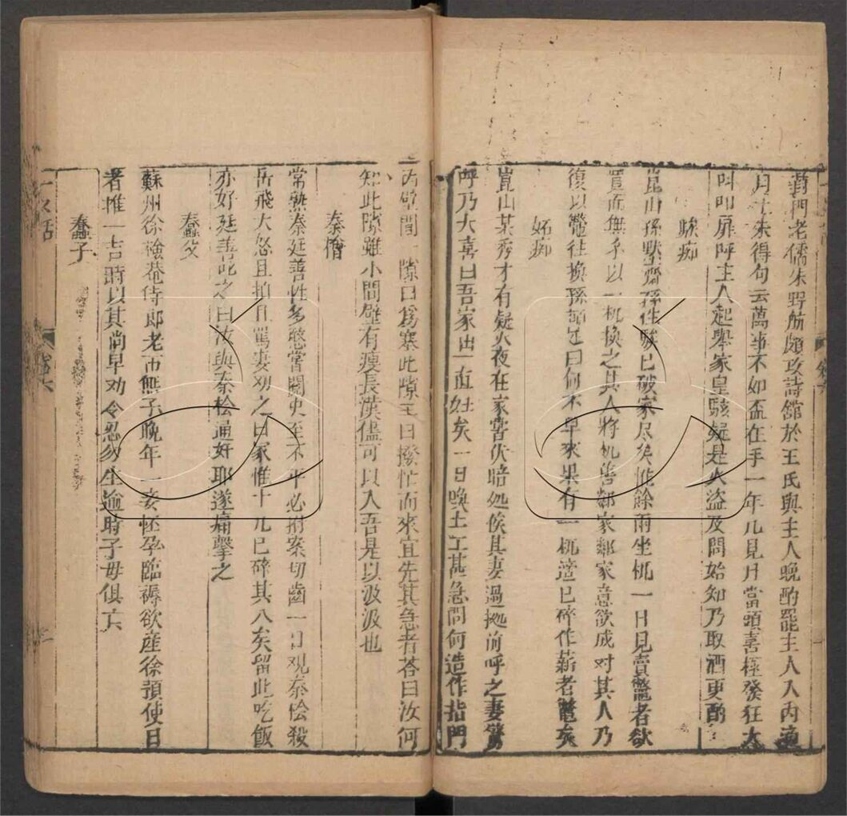 葑門老儒朱野航頗攻詩館於王氏與主人晚酌罷主人入內適
月上朱得句云萬事不如盃在手一年几見月當頭喜極發狂大
叫叩扉呼主人起舉家皇駭疑是火盜及問始知乃取酒更酌
騃痴
崑山孫默齋孫性騃已破家尽矣惟餘兩坐机一日見賣鱉者欲
置而無手以一机換之其人將机善鄰家鄰家意欲成对其人乃
復以鱉往換孫頓足曰何不早來果有一机適已碎作薪煮鱉矣
妬痴
崑山某秀才有疑夜在家嘗伏暗処俟其妻過抛前呼之妻驚
呼乃大喜曰吾家出一貞妊矣一日喚土工甚急問何造作指門
内壁間一隙曰為塞此隙工曰撥忙而來宜先其急者荅曰汝何
知此隙雖小間壁有瘦長漢儘可以入吾是以汲汲也
秦憎
常熟秦廷善性多憨嘗閱史至不平必拊案切齒一日观秦桧殺
岳飛大怒且拍且罵妻劝之曰家惟十几已碎其八矣留此吃飯
亦好廷善叱之曰汝與秦桧通奸耶遂痛擊之
蠢父
蘇州徐檢菴侍郎老而無子晚年一妾怀孕臨褥欲産徐預使日
者推一吉時以其尚早劝令忍勿生逾時子母俱亡
蠢子
一夕話
卷六